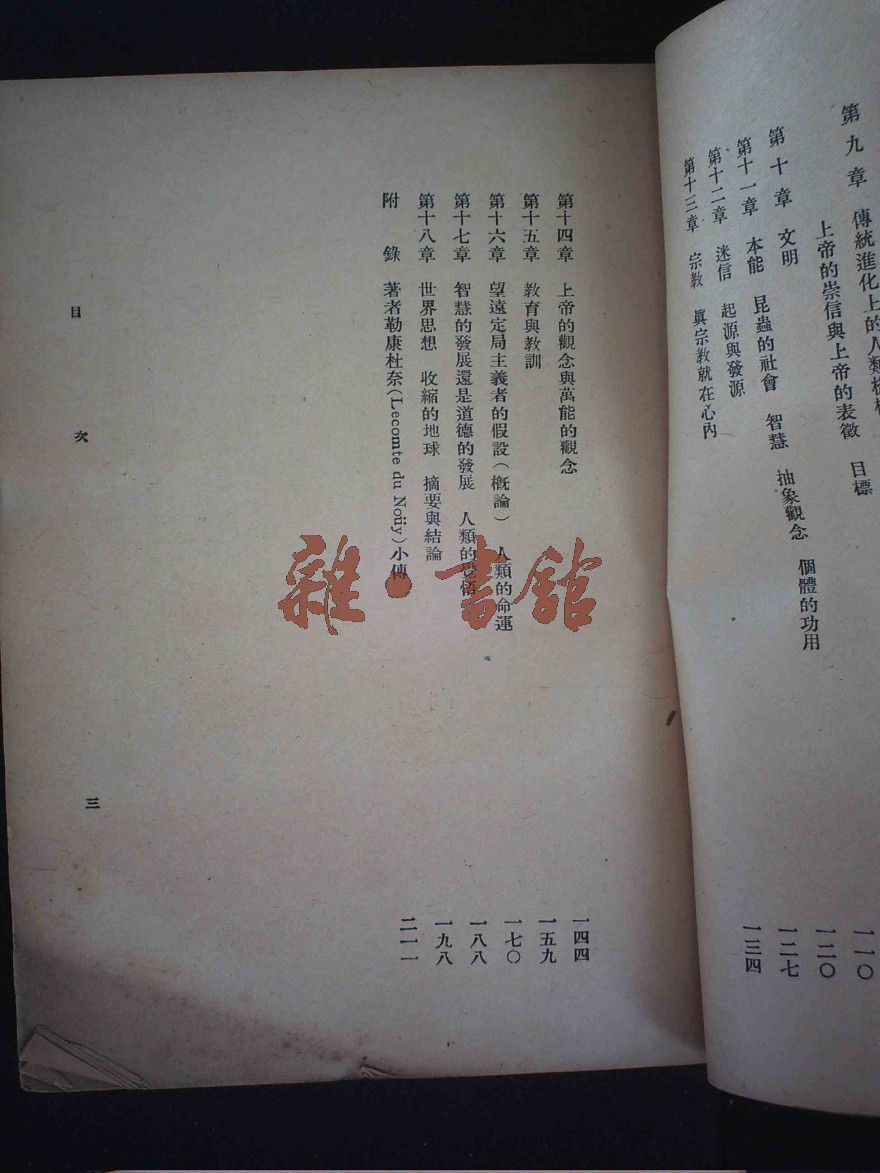 第九章　傳統進化上的人類
上帝的崇信與上帝的表徵　目標
第十章　文明
第十一章　本能　昆蟲的社會　智慧　抽象觀念　個體的功用
第十二章　迷信　起源與發源
第十三章　宗教　眞宗教就在心內
一一〇
一二〇
一二七
一三四
第十四章　上帝的觀念與萬能的觀念　一四四
第十五章　教育與教訓　一五九
第十六章　望遠定局主義者的假設（槪論）　人類的命運　一七〇
第十七章　智慧的發展還是道德的發展　人類的悟　一八八
第十八章　世界思想　收縮的地球　摘要與結論　一九八
附錄　著者勒康杜奈(Lecomte du Noüy)小傳　二一一
目次
三
雜·書館